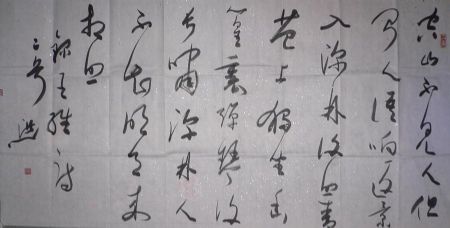 空山不见人但
闻人语响返景
入深林复照青
苔上独坐幽
篁里弹琴复
长啸深林人
不知明月来
相照
录王维诗